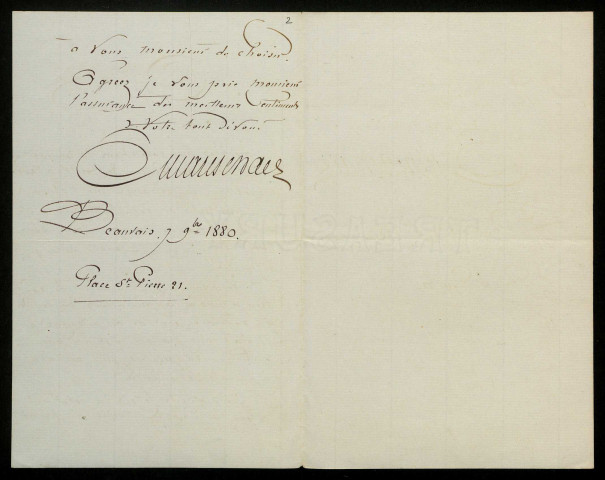 2
a vous monsieur de choisir.
Agreez je vous prie monsieur
l'assurance des meilleurs sentiments
Votre tout dévoué
Beauvais, 7 9bre 1880.
Place St Pierre 21.